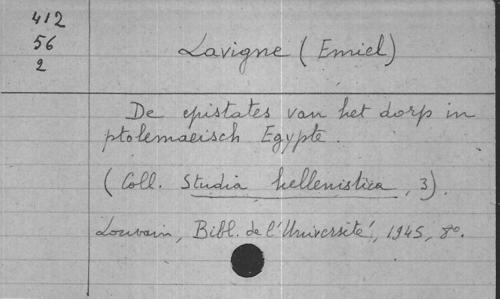 412
56
2
Lavigne (Emiel)
De epistates van het dorp in
ptolemaeisch Egypte.
(Coll. Studia hellenistica, 3).
Louvain, Bibl. de l'Université, 1945, 8°.